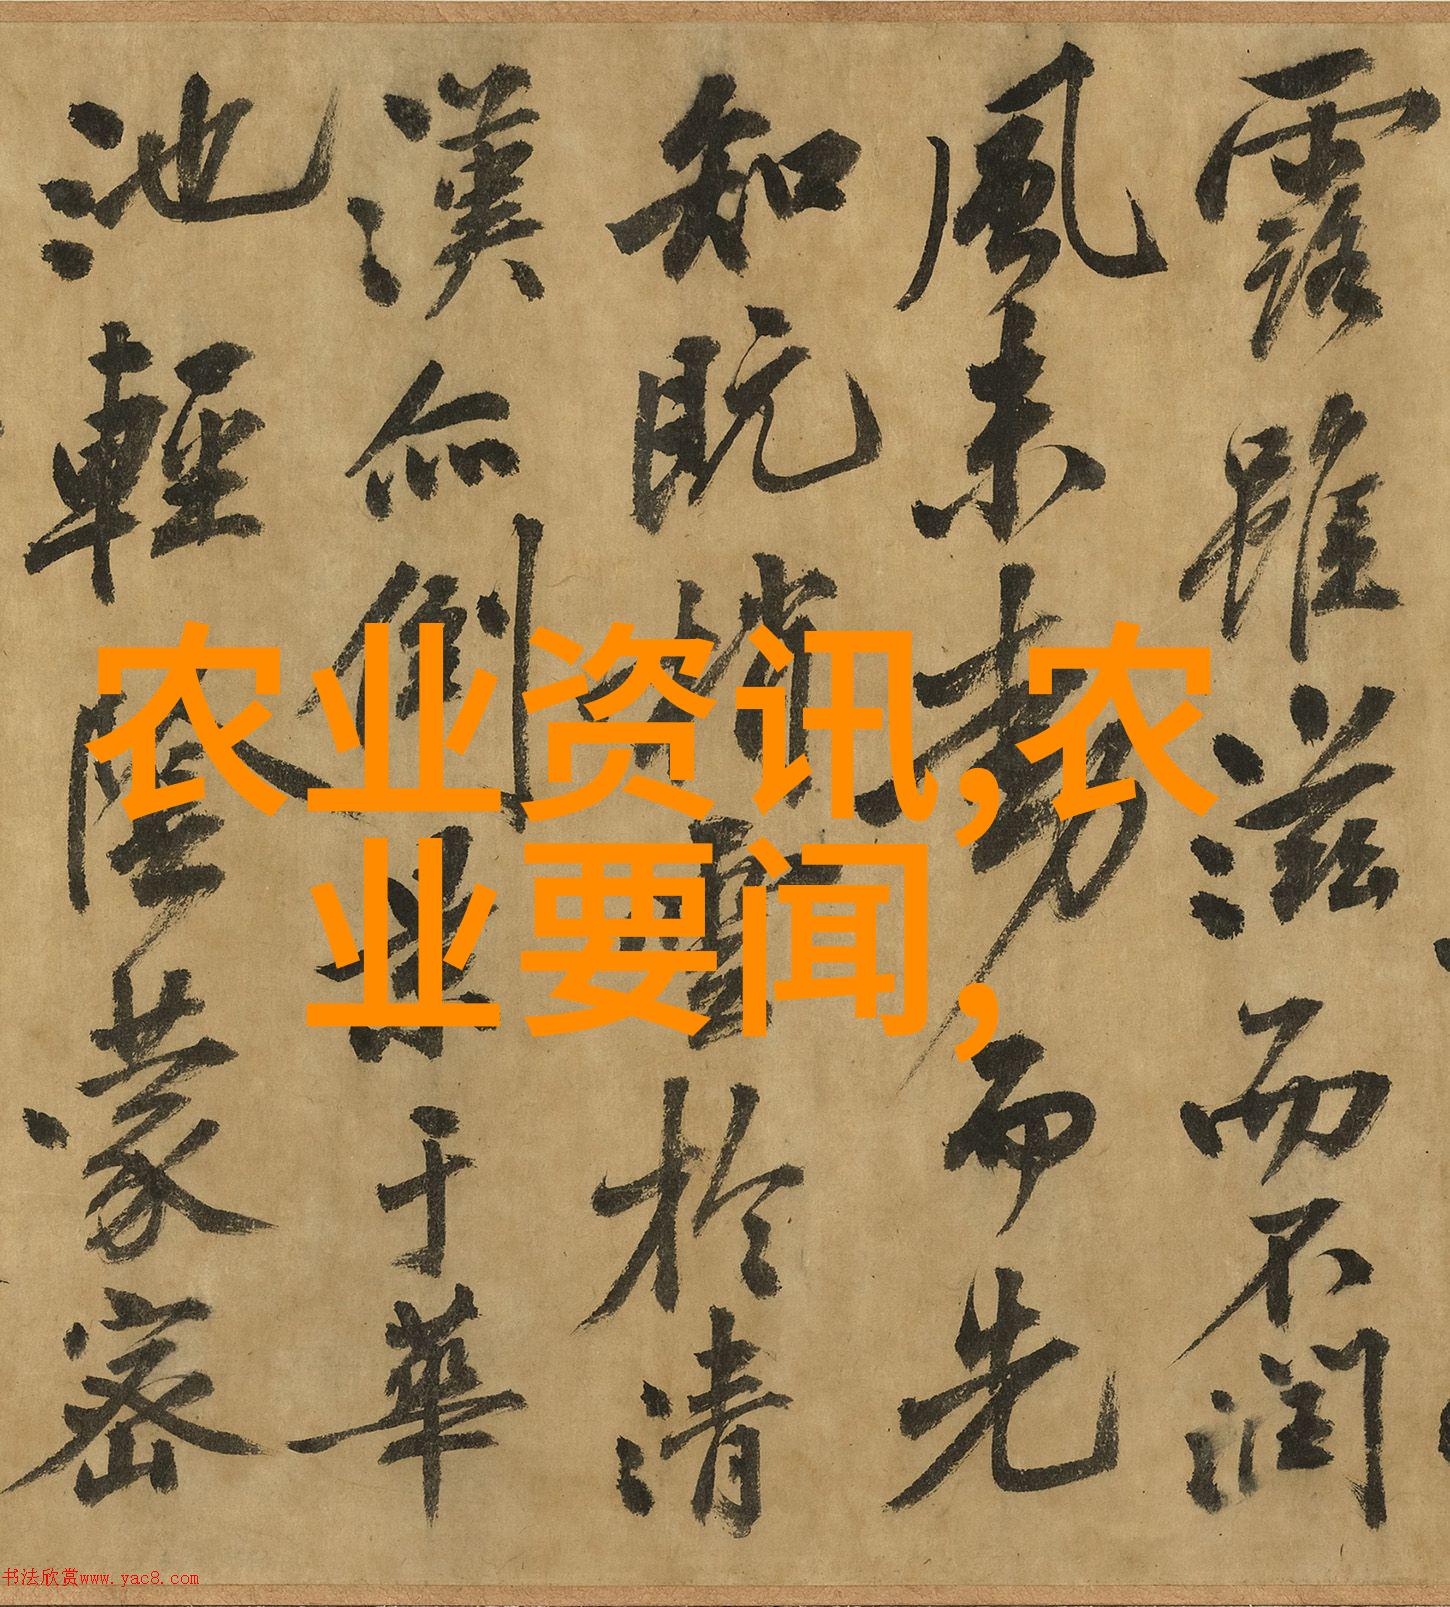 露雖滋而不潤
風未動而先
知既梢雲於清
漢亦倒景于華
池輕蒙密
农业资讯,农
业要闻,
书法欣赏www.yac8.com